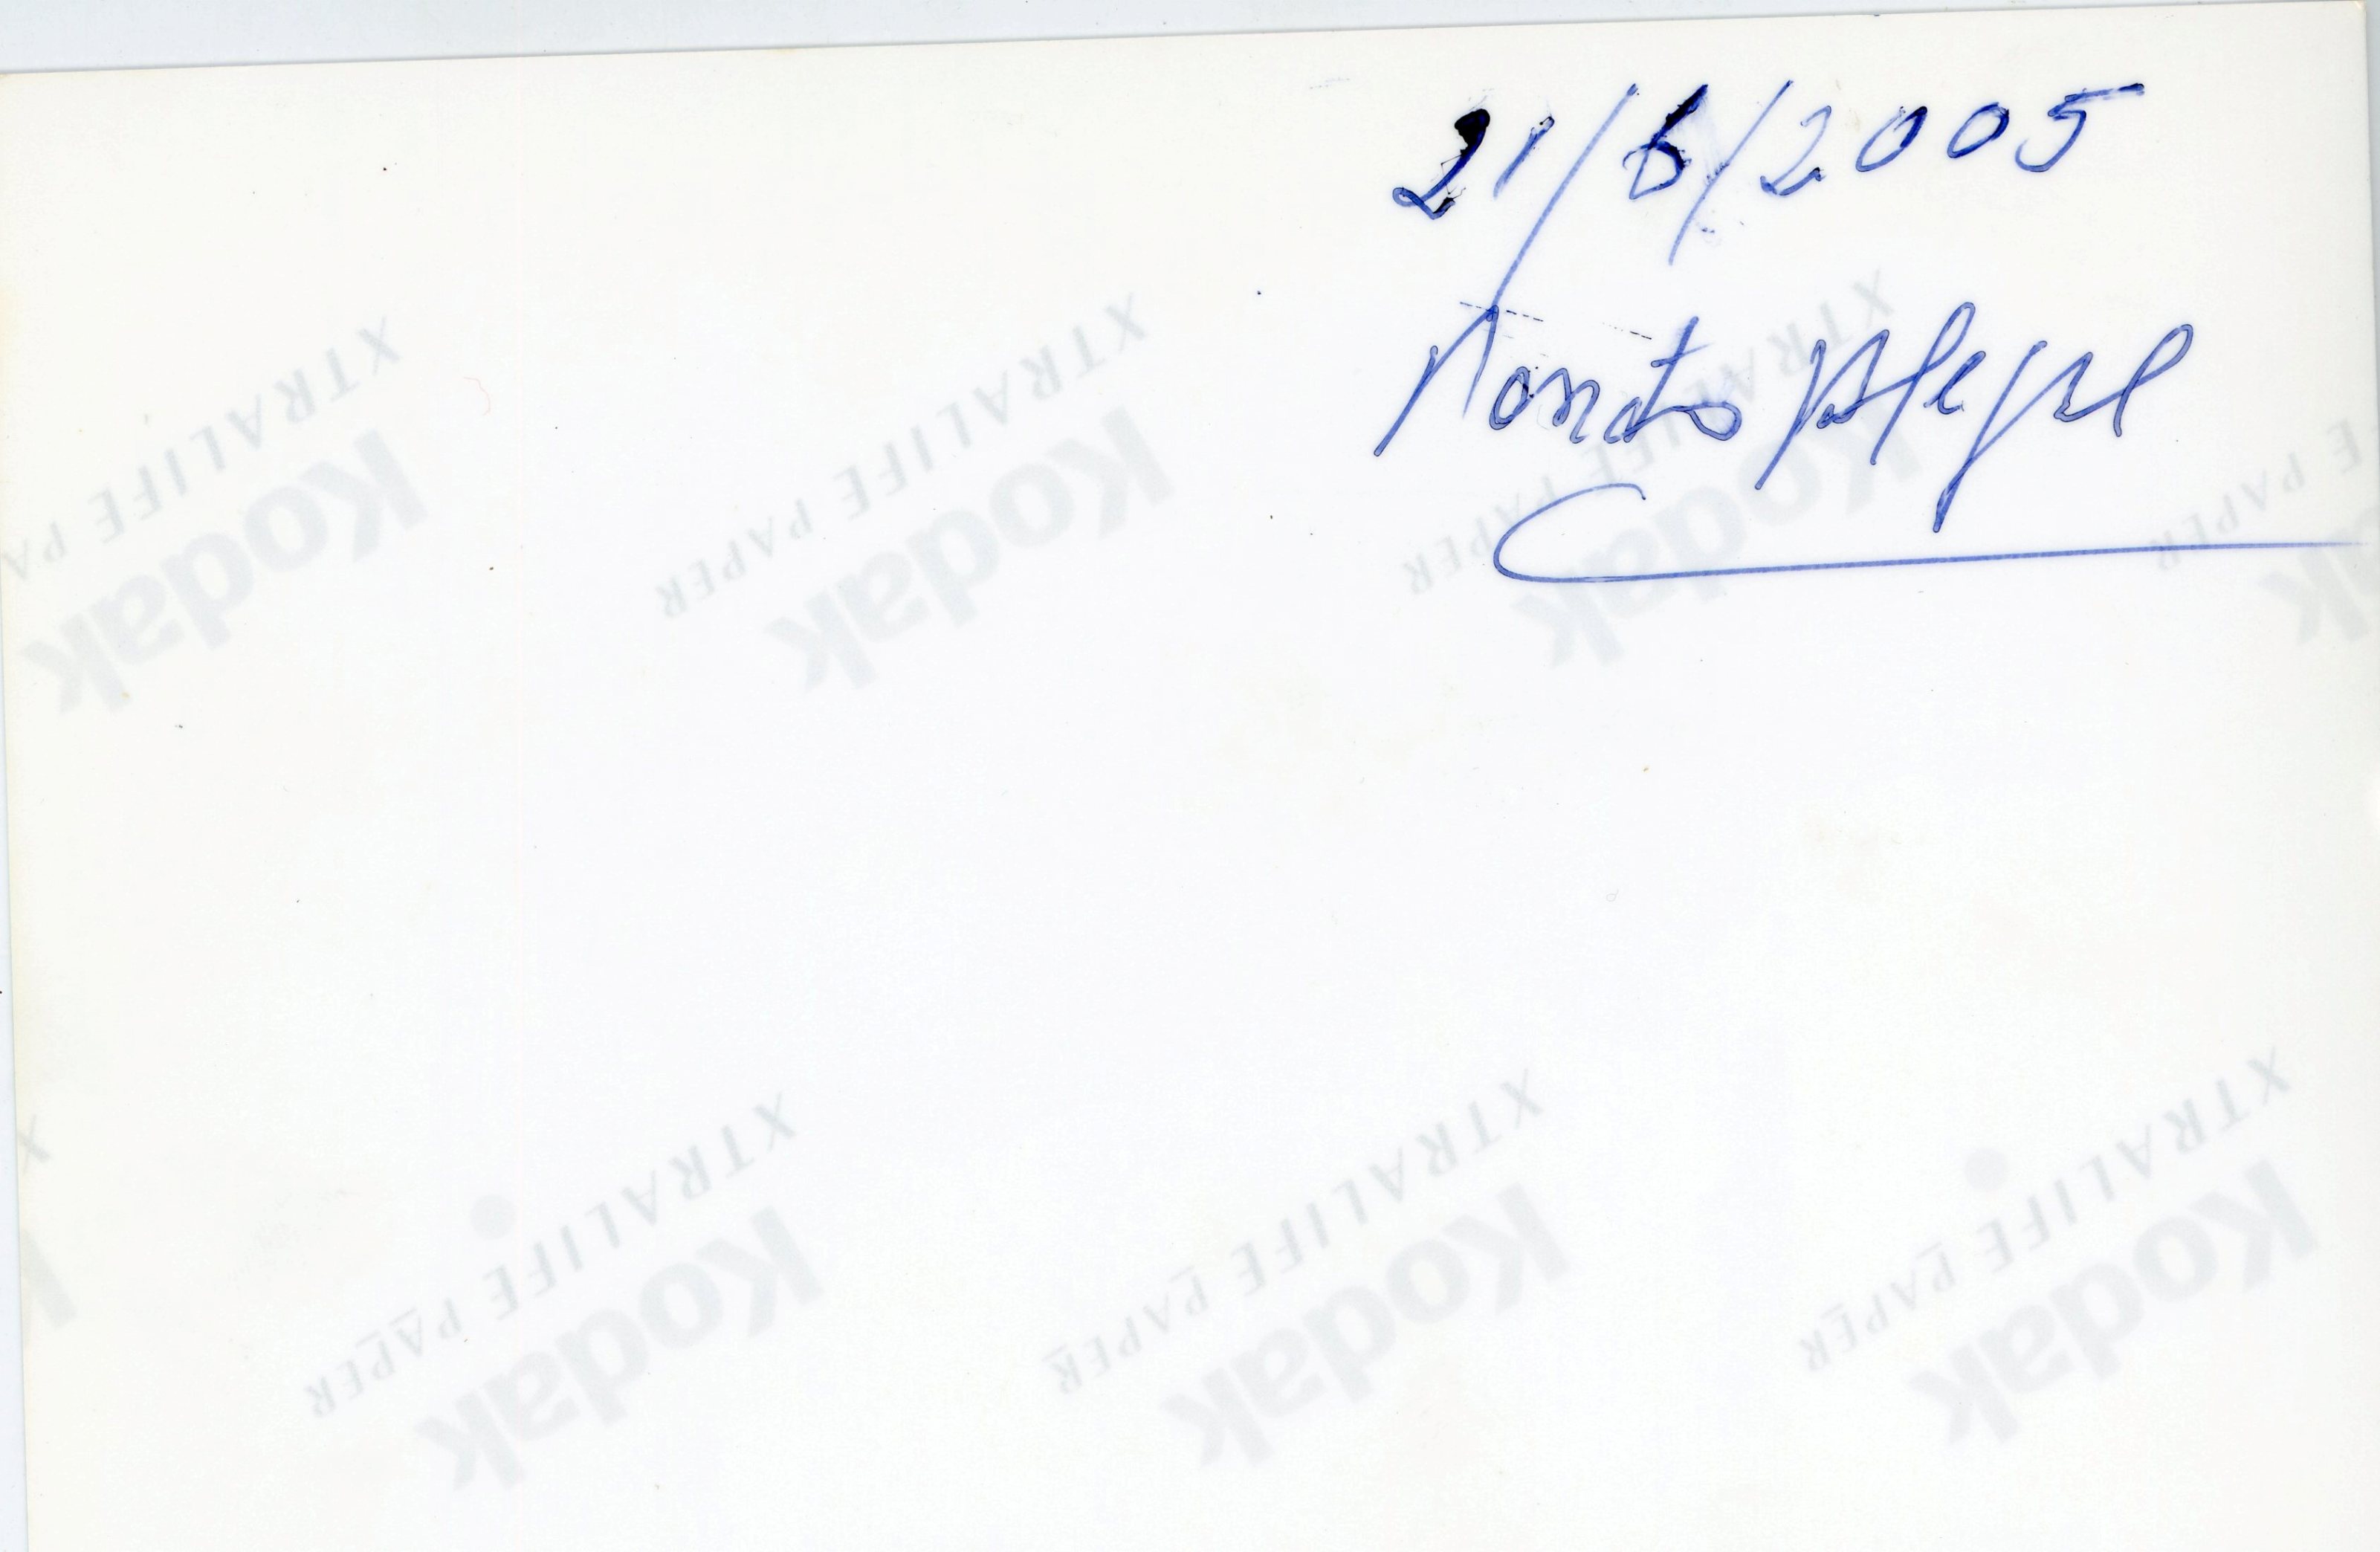 21/6/2005
Monte Alegre
Kodak
XTRALIFE PAPER
Kodak
XTRALIFE PAPER
Kodak
XTRALIFE
Kodak
XTRALIFE PAPER
Kodak
XTRALIFE PAPER
Kodak
XTRALIFE PAPER